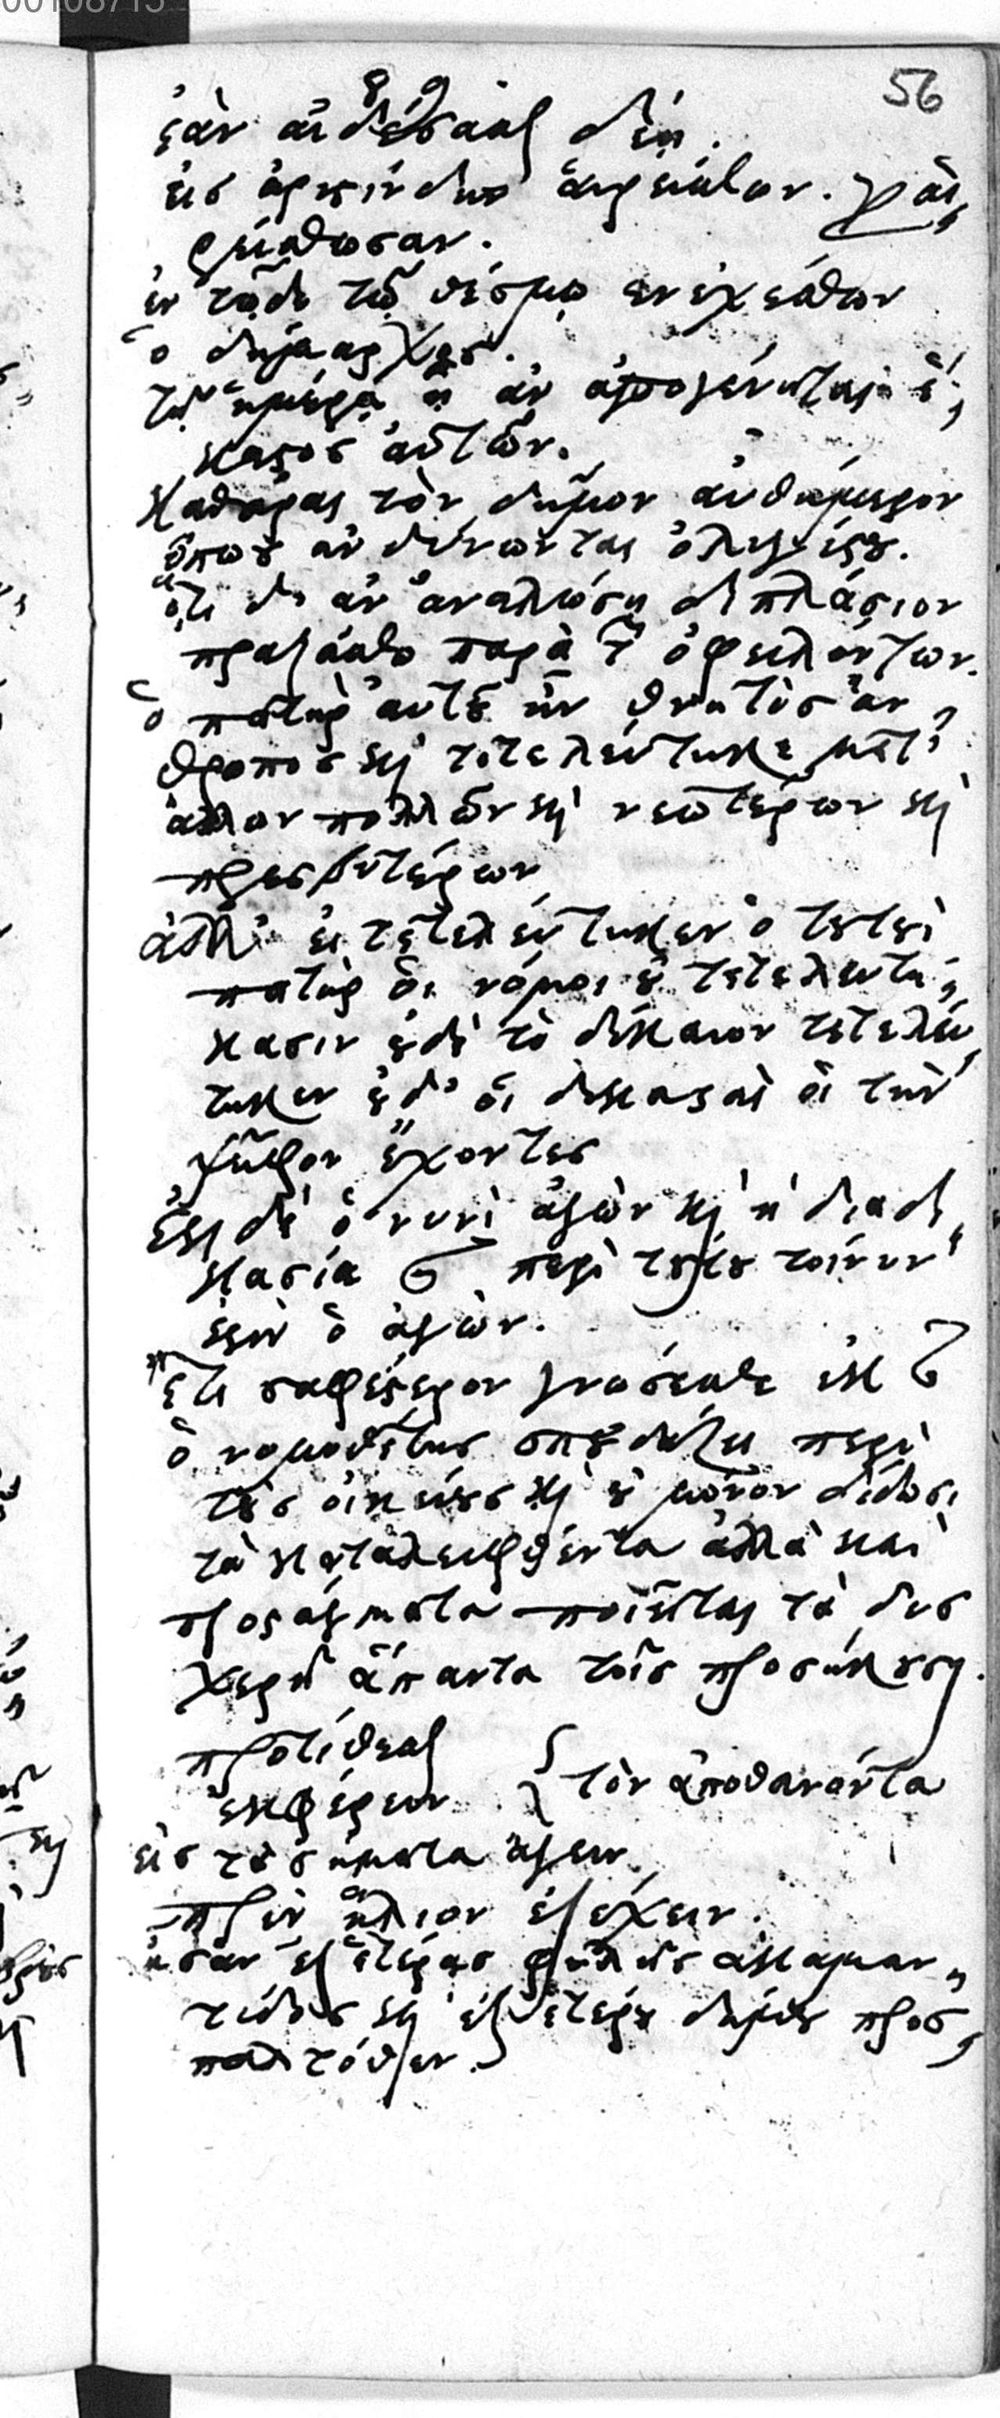 00108715
56
ἐὰν αἰδέσασθαι δέῃ.
εἰς ἀριστίνδην αἱρείσθων. γρ
ρείσθωσαν.
ἐν τῷδε τῷ θέσμῳ ἐνεχέσθων
ὁ δήμαρχος.
τῇ ἡμέρᾳ ᾗ ἂν ἀπογένηται ἕ,
καστος αὐτῶν.
καθᾶραι τὸν δῆμον αὐθήμερον
ὅπως ἂν δύνωνται ὀλιγίστου.
ὅτι δ' ἂν ἀναλώσῃ διπλάσιον
πραξάσθω παρὰ τῶν ὀφειλόντων.
ὁ πατὴρ αὐτοῦ ἦν θνητὸς ἄν,
θροπος καὶ τετελεύτηκε μετ'
ἄλλων πολλῶν καὶ νεωτέρων καὶ
πρεσβυτέρων
ἀλλ' εἰ τετελεύτηκεν ὁ τουτουὶ
πατὴρ οἱ νόμοι οὐ τετελευτή,
κασιν οὐδὲ τὸ δίκαιον τετελεύ,
τηκεν οὐδ' οἱ δικασταὶ οἱ τὴν
ψῆφον ἔχοντες
ἔστι δὲ ὁ νυνὶ ἀγὼν καὶ ἡ διαδι,
κασία περὶ τούτου τοίνυν
ἐστὶν ὁ ἀγὼν.
ἔτι σαφέστερον γνώσεσθε ἐκ
ὁ νομοθέτης σπουδάζει περὶ
τοὺς οἰκείους καὶ οὐ μόνον δίδωσι
τὰ καταλειφθέντα ἀλλὰ καὶ
προστάγματα ποιεῖται τὰ δυσ
χερῆ ἅπαντα τοῖς προσήκουσι.
προτίθεσθαι
ἐκφέρειν } τὸν ἀποθανόντα
εἰς τὰ σήματα ἄγειν
πρὶν ἥλιον ἐξέχειν.
ἦσαν ἐξ ἑτέρας φυλῆς ἀκαμαν,
τίδος καὶ ἐξ ἑτέρου δήμου προσ,
παλτόθεν.